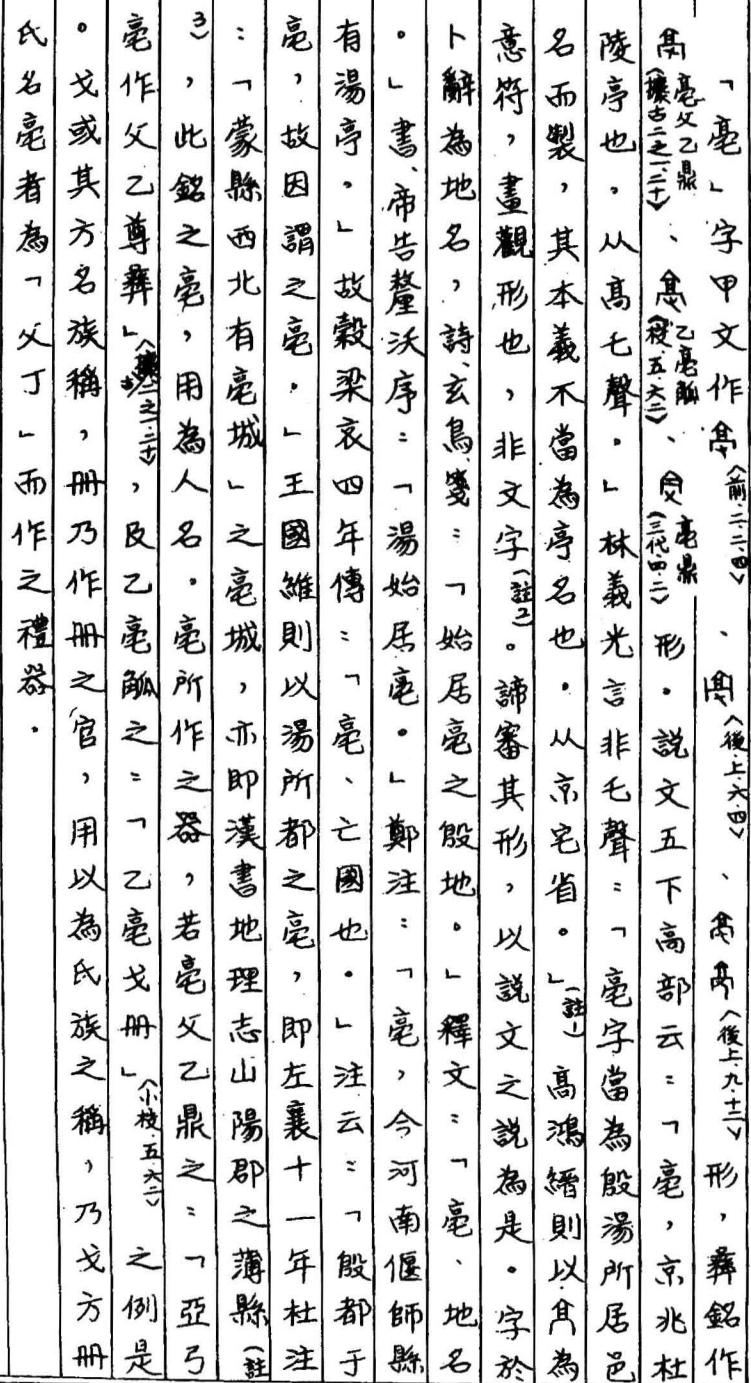 「亳」字甲文作〈前.二.二.四〉、〈後.上.六.四〉、〈後上.九.十二〉形，彝銘作
亳父乙鼎〈攈古二之一.二十〉、乙亳觚〈小校.五.六二〉、亳鼎〈三代四.二〉形。說文五下高部云：「亳，京兆杜
陵亭也，从高乇聲。」林義光言非乇聲：「亳字當為殷湯所居邑
名而製，其本義不當為亭名也。从京宅省。」（註1）高鴻縉則以 為
意符，畫觀形也，非文字（註2）。諦審其形，以說文之說為是。字於
卜辭為地名，詩、玄鳥、箋：「始居亳之殷地。」釋文：「亳、地名
。」書、帝告釐沃序：「湯始居亳。」鄭注：「亳，今河南偃師縣
有湯亭。」故穀梁哀四年傳：「亳、亡國也。」注云：「殷都于
亳，故因謂之亳。」王國維則以湯所都之亳，即左襄十一年杜注
：「蒙縣西北有亳城」之亳城，亦即漢書地理志山陽郡之薄縣（註
3），此銘之亳，用為人名。亳所作之器，若亳父乙鼎之：「亞弓
亳作父乙尊彝」〈攈古二之一.二十〉，及乙亳觚之：「乙亳戈冊」〈小校.五.六二〉之例是
。戈或其方名族稱，冊乃作冊之官，用以為氏族之稱，乃戈方冊
氏名亳者為「父丁」而作之禮器。